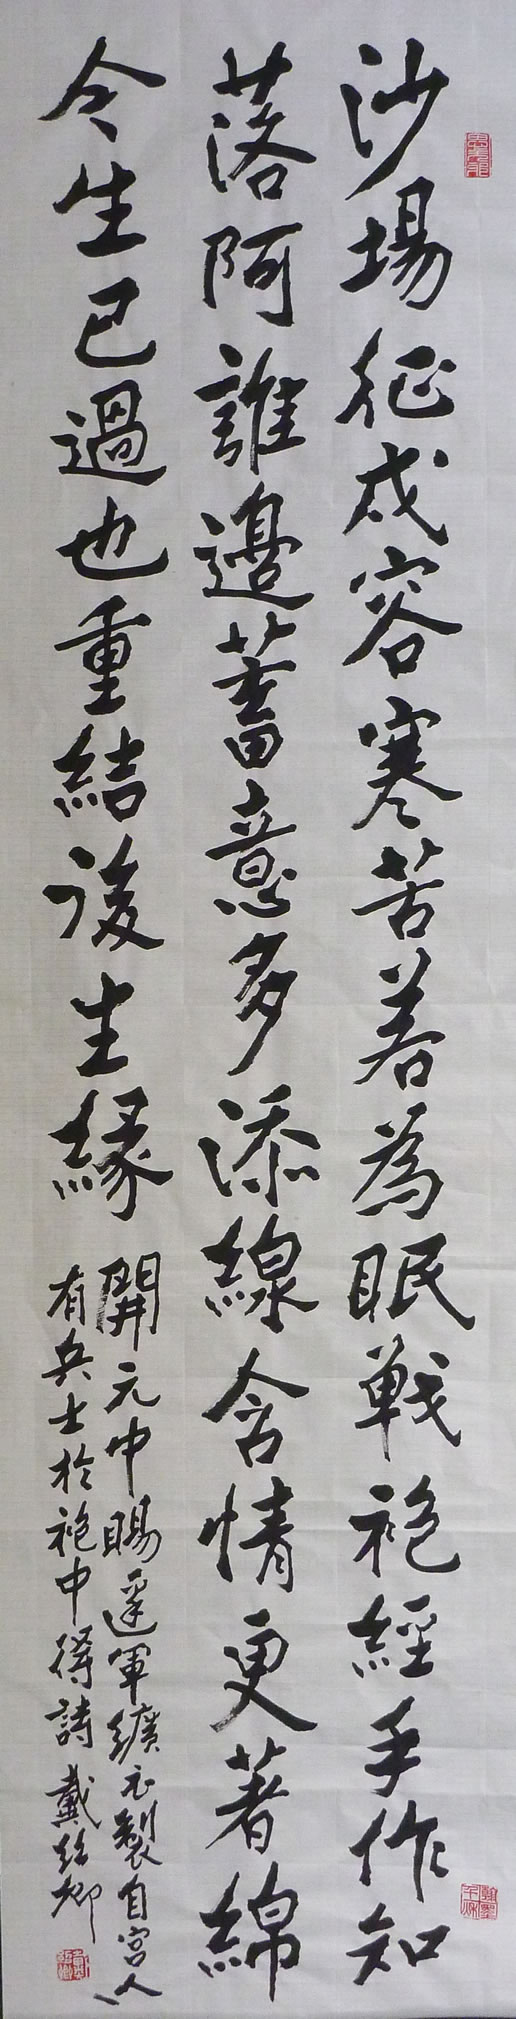 沙場征戍容寒苦若為眠戰袍經手作知
落阿誰邊蓄意多添線含情更著綿
今生已過也重結後生緣
開元中賜邊軍纊衣製自宮人
有兵士於袍中得詩 戴紹卿